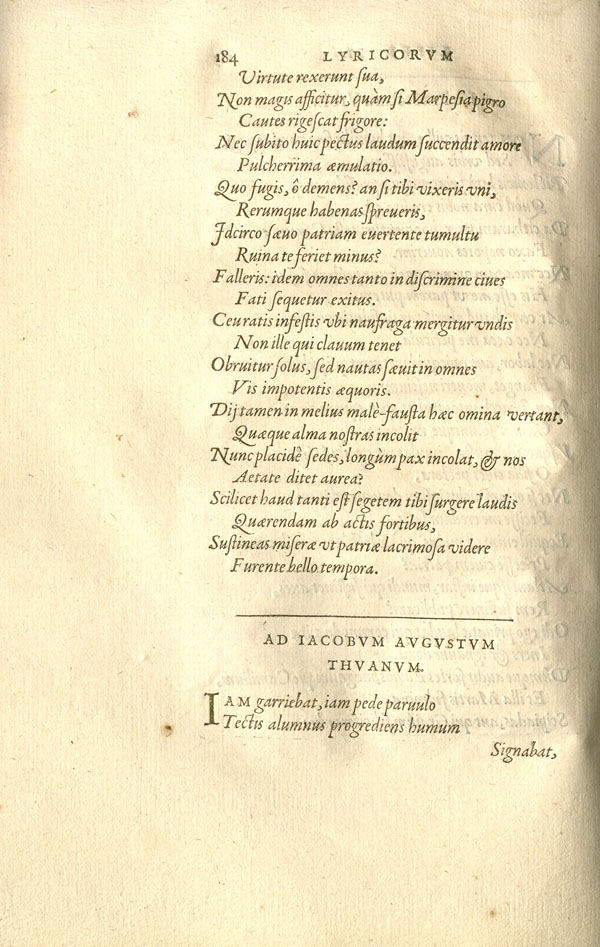 184 LYRICORVM
Virtute rexerunt ſua,
Non magis afficitur, quàm ſi Marpeſia pigro
Cautes rigeſcat frigore:
Nec ſubito huic pectus laudum ſuccendit amore
Pulcherrima æmulatio.
Quo fugis, ô demens? an ſi tibi vixeris vni,
Rerumque habenas ſpreueris,
Idcirco ſæuo patriam euertente tumultu
Ruina te feriet minus?
Falleris: idem omnes tanto in diſcrimine ciues
Fati ſequetur exitus.
Ceu ratis infeſtis vbi naufraga mergitur vndis
Non ille qui clauum tenet
Obruitur ſolus, ſed nautas ſæuit in omnes
Vis impotentis æquoris.
Dij tamen in melius malè-fauſta hæc omina vertant,
Quæque alma noſtras incolit
Nunc placidè ſedes, longùm pax incolat, & nos
Aetate ditet aurea?
Scilicet haud tanti eſt ſegetem tibi ſurgere laudis
Quærendam ab actis fortibus,
Suſtineas miſeræ vt patriæ lacrimoſa videre
Furente bello tempora.
AD IACOBVM AVGVSTVM
THVANVM.
IAM garriebat, iam pede paruulo
Tectis alumnus progrediens humum
Signabat,